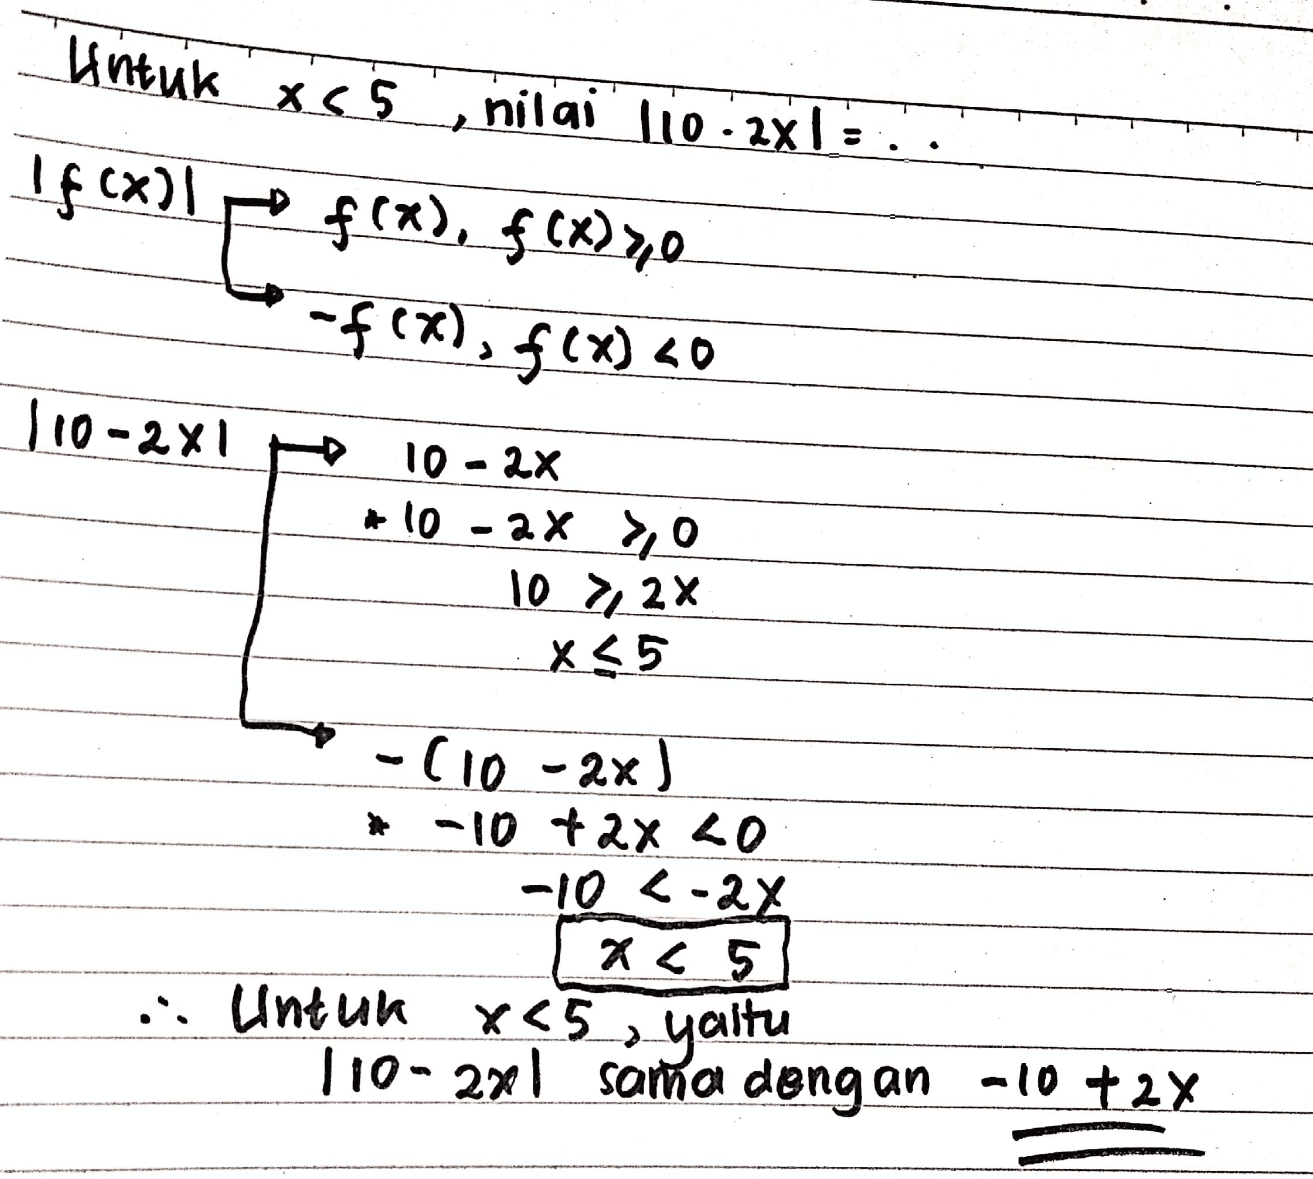 Untuk x < 5, nilai |10 - 2x| = . .
|f(x)| → f(x), f(x) ≥ 0
→ -f(x), f(x) < 0
|10 - 2x| → 10 - 2x
* 10 - 2x ≥ 0
10 ≥ 2x
x ≤ 5
→ -(10 - 2x)
* -10 + 2x < 0
-10 < -2x
x < 5
∴ Untuk x < 5, yaitu
|10 - 2x| sama dengan -10 + 2x